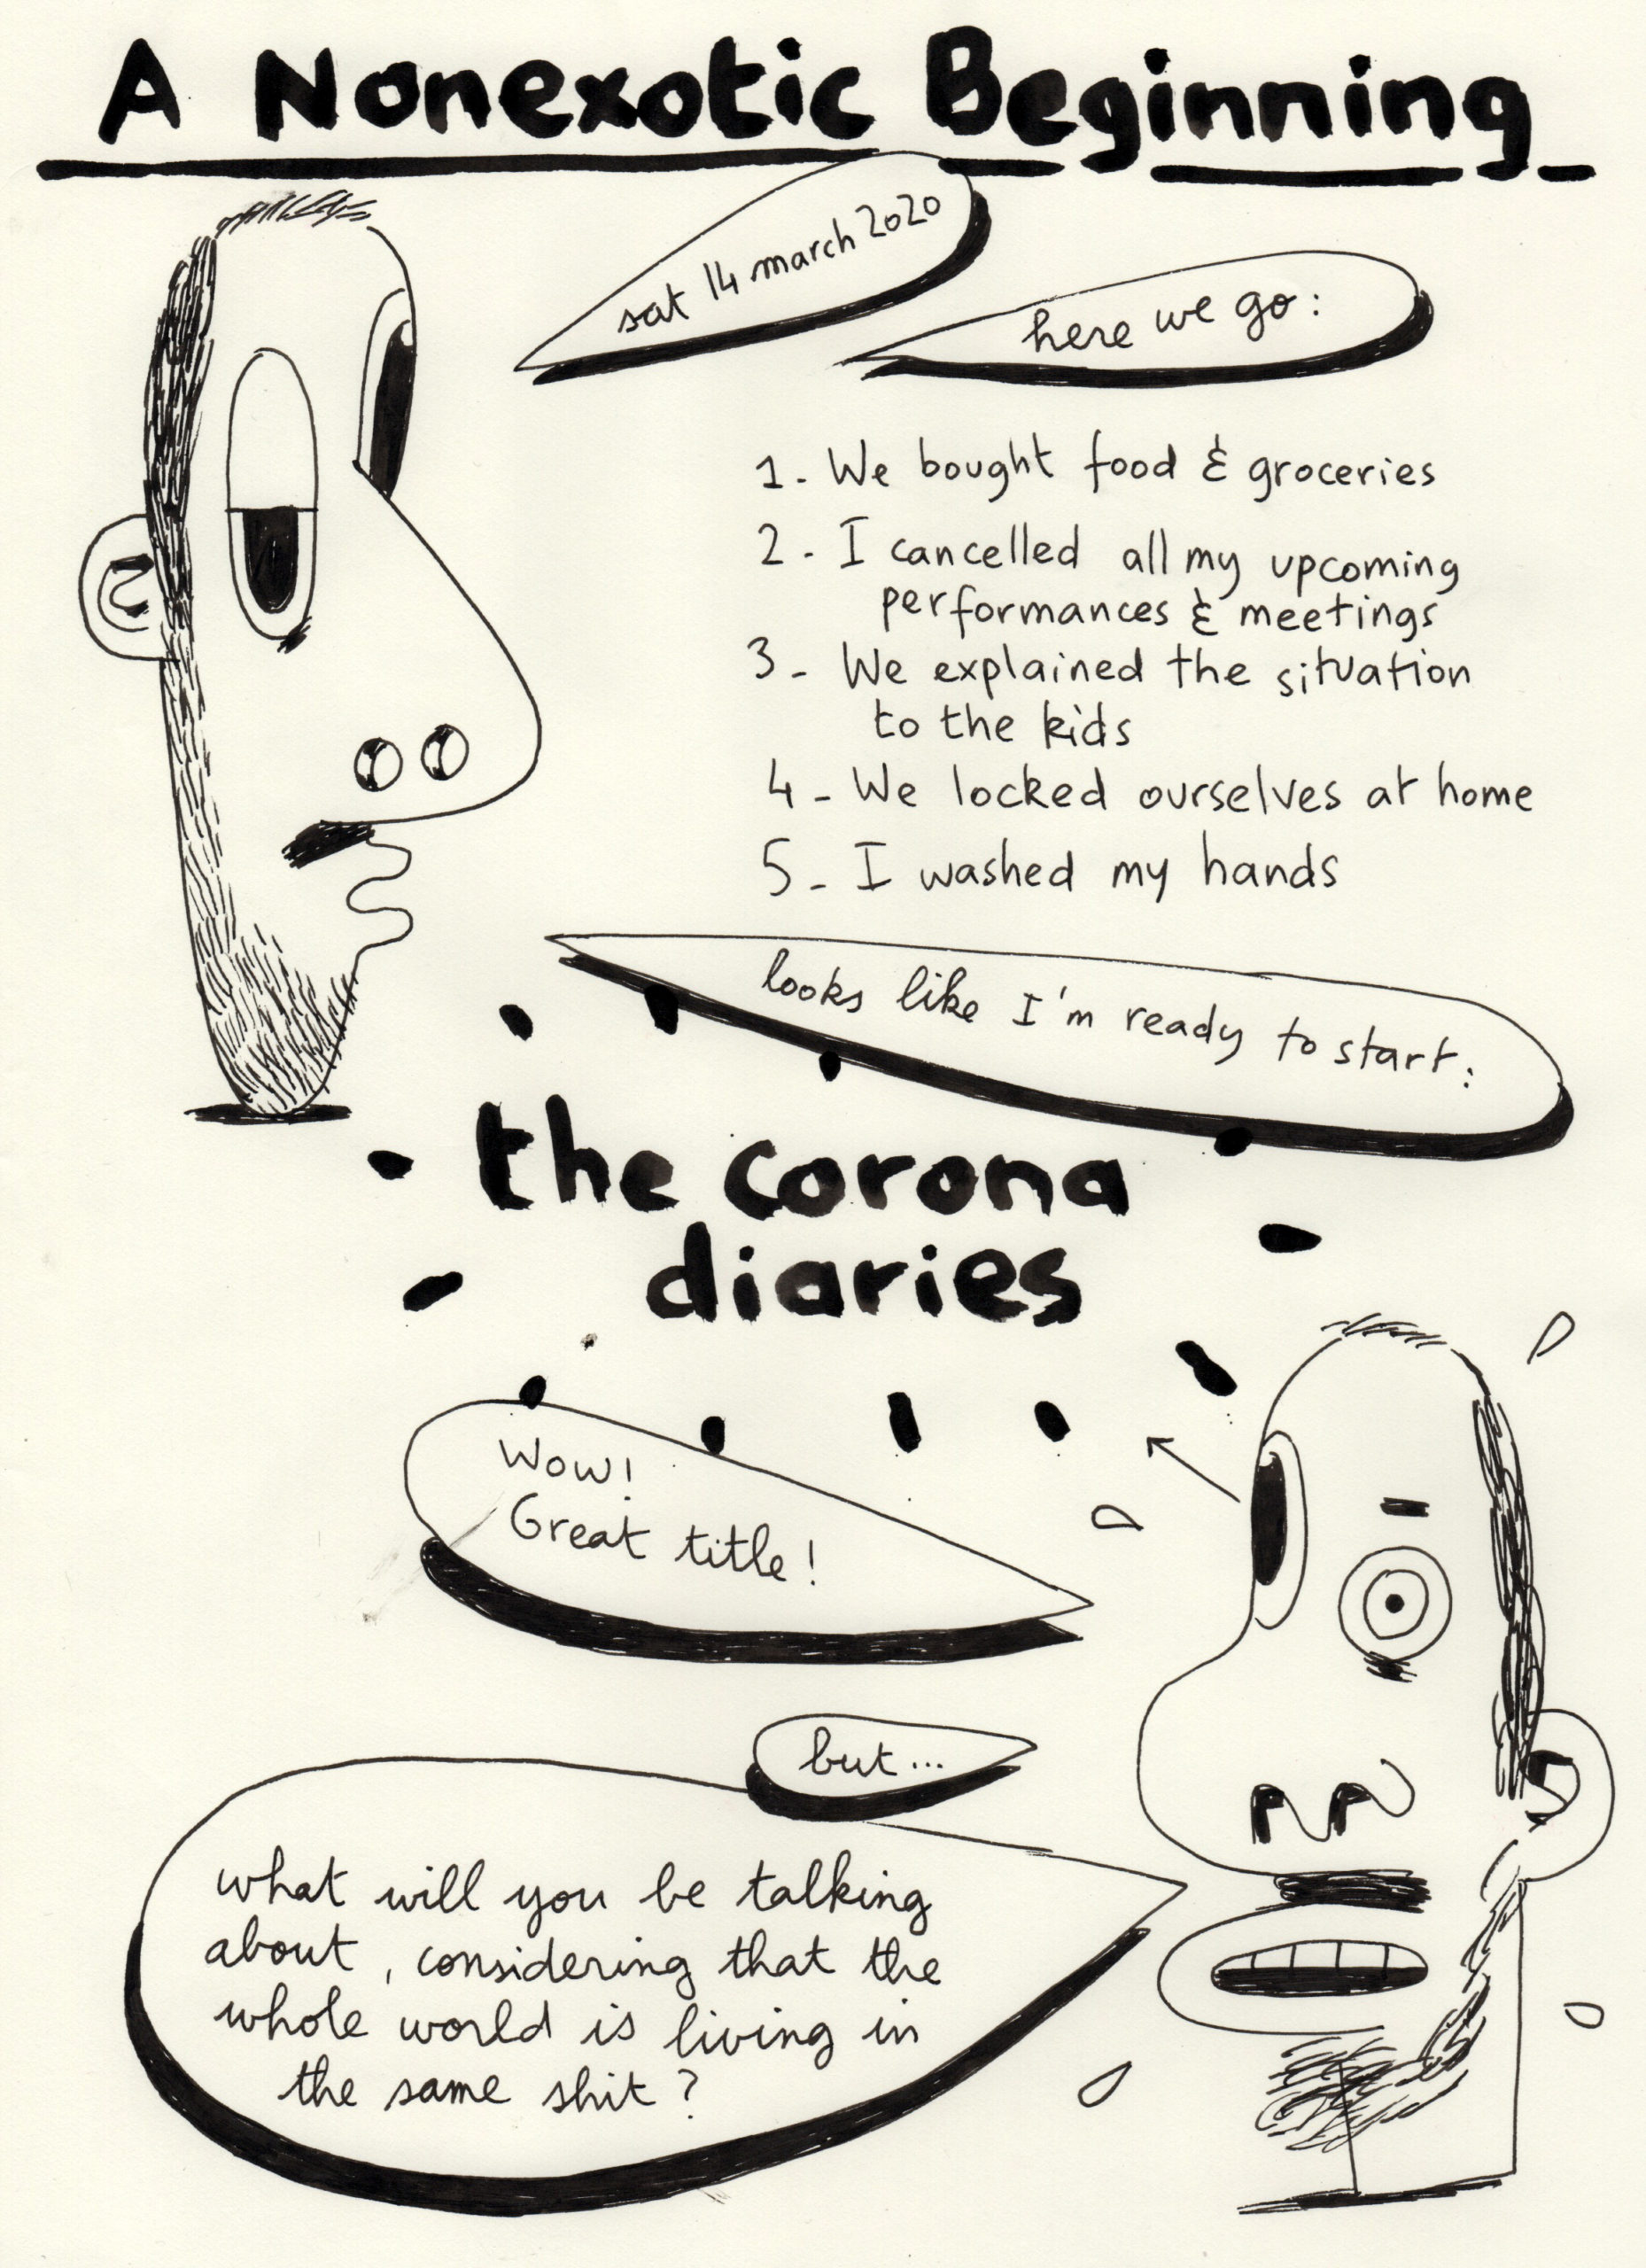 A Nonexotic Beginning
sat 14 march 2020
here we go:
1- We bought food & groceries
2- I cancelled all my upcoming
performances & meetings
3- We explained the situation
to the kids
4- We locked ourselves at home
5- I washed my hands
looks like I'm ready to start:
the corona
diaries
Wow!
Great title!
but...
what will you be talking
about, considering that the
whole world is living in
the same shit?